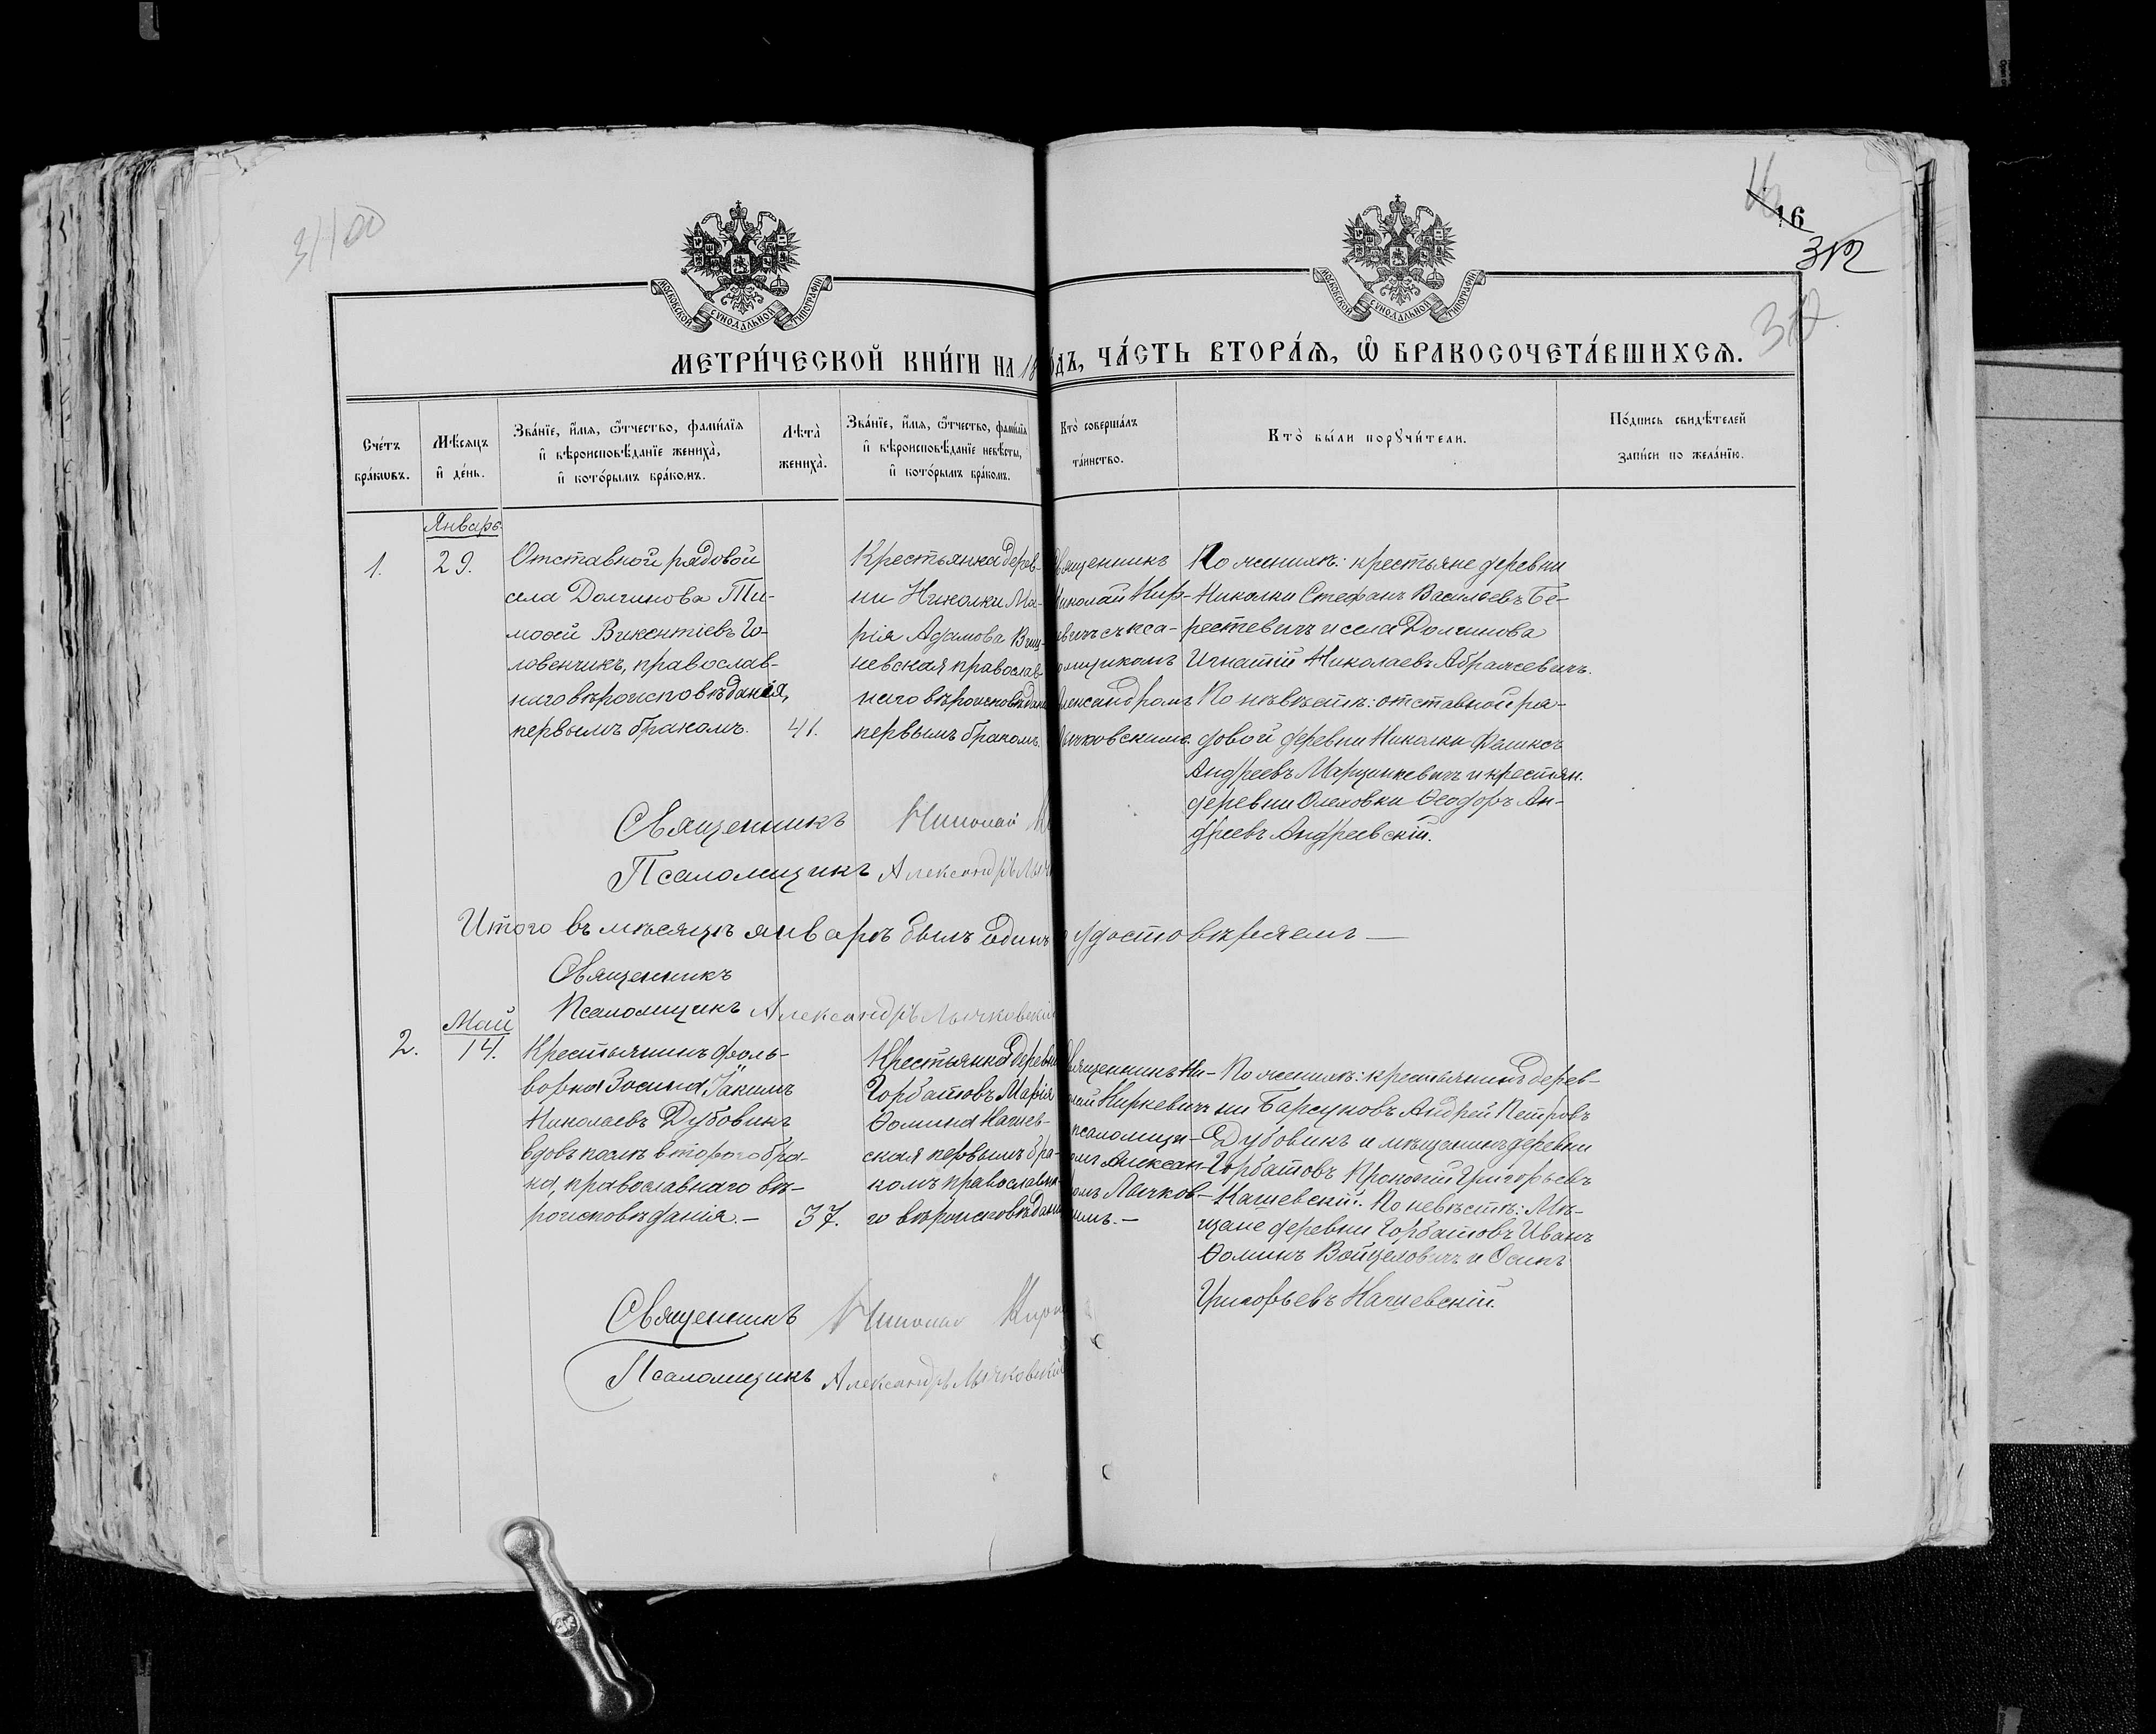 31100
16
312
312
МОСКОВСКОЙ СѴНОДАЛЬНОЙ ТИПОГРАФІИ
МОСКОВСКОЙ СѴНОДАЛЬНОЙ ТИПОГРАФІИ
МЕТРИ́ЧЕСКОЙ КНИ́ГИ НА 18
ОДЪ, ЧА́СТЬ ВТОРА́Ѧ, Ѡ҆ БРАКОСОЧЕТА́ВШИХСѦ.
Сче́тъ
бра́кѡвъ.
Мѣ́сѧцъ
и҆ де́нь.
Зва́нїе, и҆́мѧ, ѻ҆́тчество, фами́лїѧ
и҆ вѣроисповѣ́данїе жениха̀,
и҆ кото́рымъ бра́комъ.
Лѣта̀
жениха̀.
Зва́нїе, и҆́мѧ, ѻ҆́тчество, фами́лїѧ
и҆ вѣроисповѣ́данїе невѣ́сты,
и҆ кото́рымъ бра́комъ.
Кто̀ соверша́лъ
та́инство.
Кто̀ бы́ли порꙋчи́тели.
По́дпись свидѣ́телей
за́писи по жела́нїю.
Январь.
1.
29.
Отставной рядовой
села Долгинова Ти-
моѳей Викентіевъ Го-
ловенчикъ, православ-
наго вѣроисповѣданія,
первымъ бракомъ.
41.
Крестьянка дерев-
ни Николки Ма-
рія Адамова Виш-
невская православ-
наго вѣроисповѣдан
первымъ бракомъ.
Священникъ
Николай Кир-
евичъ съ пса-
ломщикомъ
Александромъ
Лычковскимъ.
По женихѣ: крестьяне деревни
Николки Стефанъ Васильевъ Бе-
рестевичъ и села Долгинова
Игнатій Николаевъ Абрамевичъ.
По невѣстѣ: отставной ря-
довой деревни Николки Феликсъ
Андреевъ Марцинкевичъ и крестьян.
деревни Олеховки Ѳеодоръ Ан-
дреевъ Андреевскій.
Священникъ Николай
Псаломщикъ Александръ Лыч
Итого въ мѣсяцѣ январѣ былъ одинъ
удостовѣряемъ —
Священникъ
Псаломщикъ Александръ Лычковскій
Май
2.
14.
Крестьянинъ фоль-
варка Зосина, Іакимъ
Николаевъ Дубовикъ
вдовъ послѣ второго бра-
ка, православнаго вѣ-
роисповѣданія. —
37.
Крестьянка деревни
Горбатовъ Марія
Ѳомина Нагнев-
ская первымъ бра-
комъ православна-
го вѣроисповѣдан
Священникъ Ни-
олай Киркевичъ
псаломщи-
омъ Алексан-
омъ Лычков-
имъ. —
По женихѣ: крестьянинъ дерев-
ни Барсуковъ Андрей Петровъ
Дубовикъ и мѣщанинъ деревни
Горбатовъ Прокопій Григорьевъ
Нагневскій. По невѣстѣ: Мѣ-
щане деревни Горбатовъ Иванъ
Ѳоминъ Войцеховичъ и Осипъ
Григорьевъ Нагневскій.
Священникъ Николай Кирк
Псаломщикъ Александръ Лычковскій